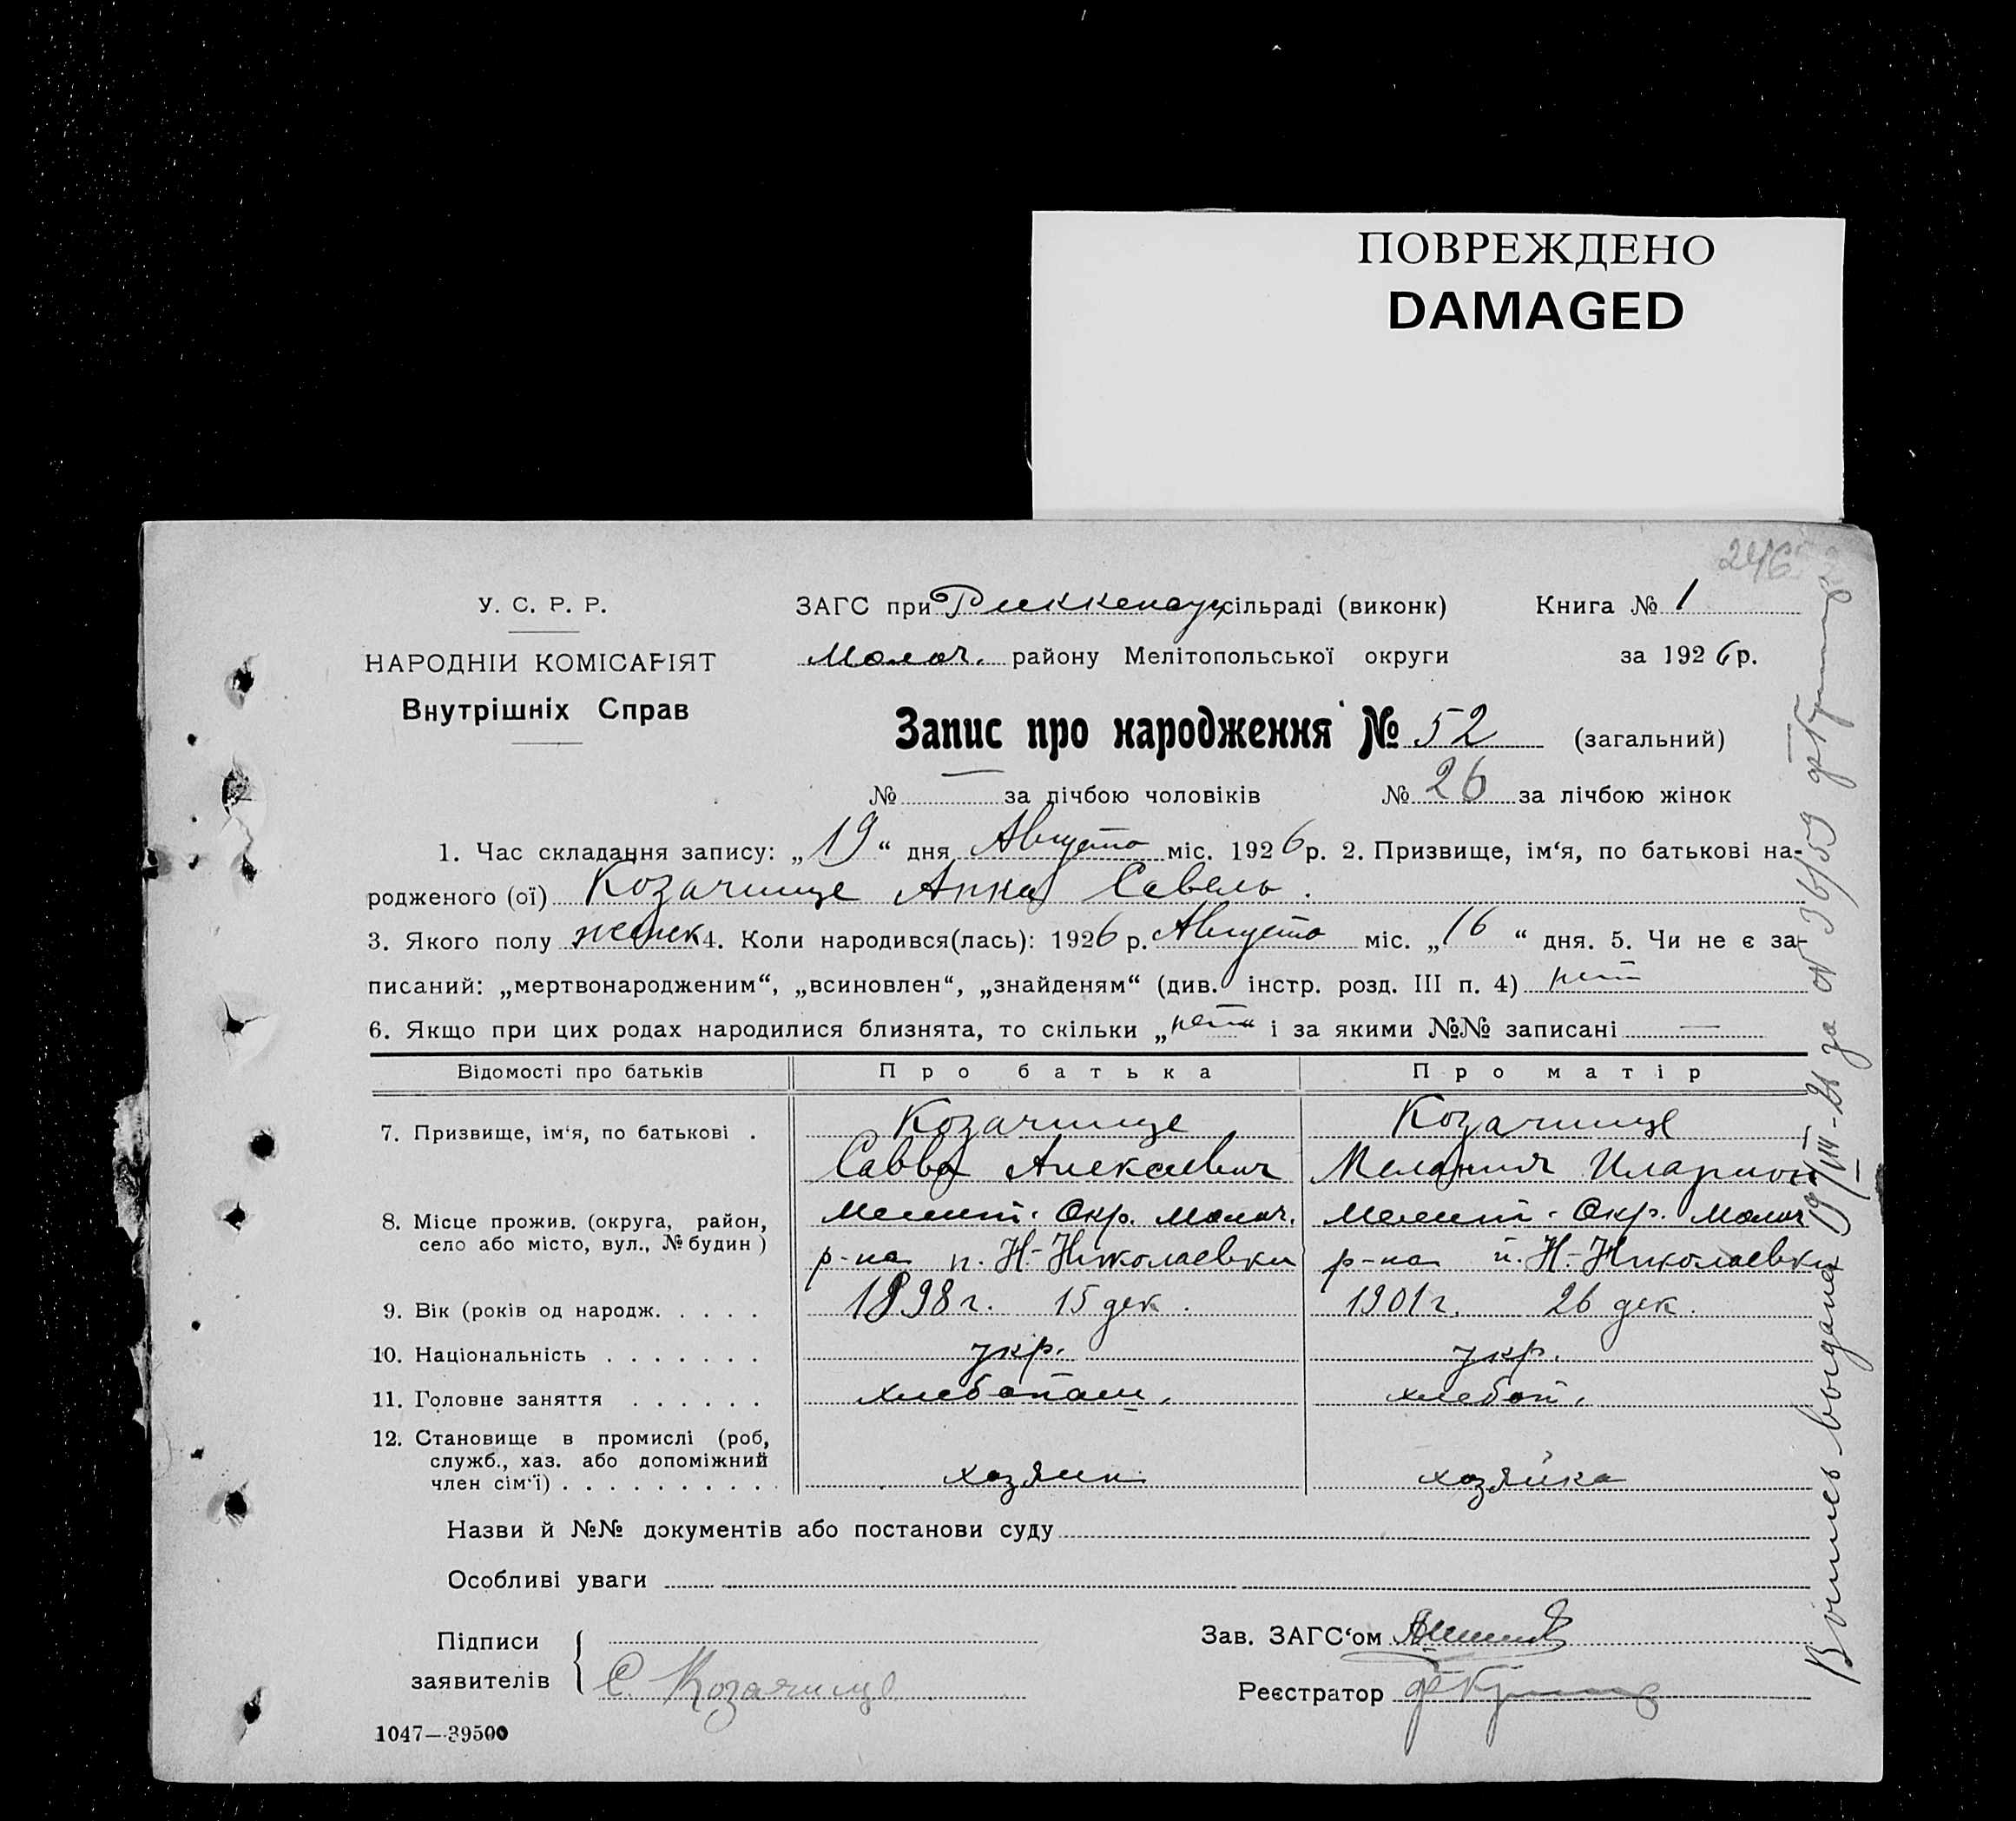 ПОВРЕЖДЕНО
DAMAGED
246
У. С. Р. Р.
НАРОДНІЙ КОМІСАРІЯТ
Внутрішніх Справ
ЗАГС при Риккенау сільраді (виконк)
Книга № 1
Молоч. району Мелітопольської округи
за 1926 р.
Запис про народження № 52 (загальний)
№ — за лічбою чоловіків № 26 за лічбою жінок
1. Час складання запису: „19“ дня Августа міс. 1926 р. 2. Призвище, ім‘я, по батькові на-
родженого (ої) Козачище Анна Савель.
3. Якого полу женск 4. Коли народився(лась): 1926 р. Августа міс. „16“ дня. 5. Чи не є за-
писаний: „мертвонародженим“, „всиновлен“, „знайденям“ (див. інстр. розд. III п. 4) нет
6. Якщо при цих родах народилися близнята, то скільки „нет“ і за якими №№ записані —
Відомості про батьків Про батька Про матір
7. Призвище, ім‘я, по батькові . Козачище Козачище
Савва Алексеевич Мелания Иларион
8. Місце прожив. (округа, район, село або місто, вул., № будин) Мелит. Окр. Молоч. Мелит. Окр. Молоч
р-на п. Н.-Николаевки р-на п. Н.-Николаевки
9. Вік (років од народж. . . . . 1898 г. 15 дек. 1901 г. 26 дек.
10. Національність . . . . . . . укр. укр.
11. Головне заняття . . . . . . хлебопаш. хлебоп.
12. Становище в промислі (роб,
служб., хаз. або допоміжний
член сім‘ї) . . . . . . . . . . хозяин хозяйка
Назви й №№ документів або постанови суду
Особливі уваги
Підписи
заявителів
С. Козачище
Зав. ЗАГС‘ом
Реєстратор
1047—39500
Выпись выдана за № 36/53